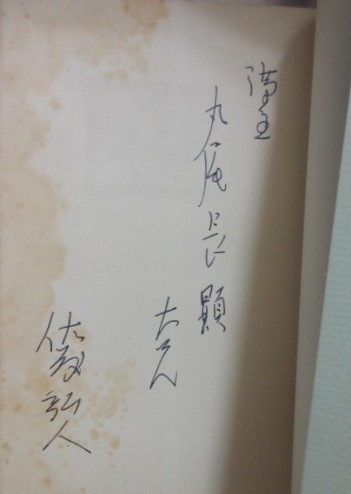 謹呈
丸尾長顯
大兄
佐藤弘人